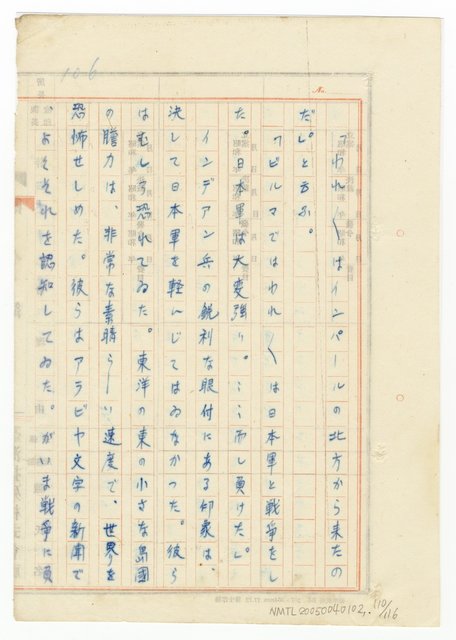 106
No.
「われ〳〵はインパールの北方から来たの
だ。」と云ふ。
「ビルマではわれ〳〵は日本軍と戦争をし
た。日本軍は大変強い。……而し負けたし。
インデアン兵の鋭利な眼付にある印象は、
決して日本軍を軽んじてはゐなかつた。彼ら
はむしろ恐れてゐた。東洋の東の小さな島國
の膽力は、非常な素晴らしい速度で、世界を
恐怖せしめた。彼らはアラビヤ文字の新聞で
よくそれを認知してゐた。がいま戦争に負
NMTL20050040102, 110/116